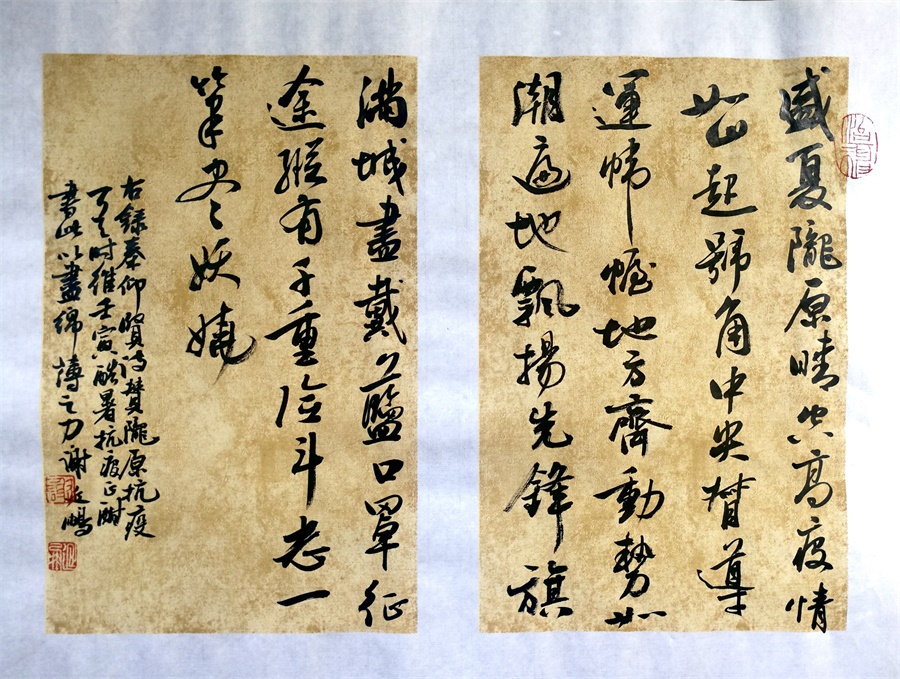 盛夏隴原晴空高疫情
如山起號角中央督導
運帷幄地方齊動勢如
潮遍地飄揚先鋒旗
滿城盡戴藍口罩征
途縱有千重險斗志一
妖嬈
右録秦仰賢詩贊隴原抗疫
时維壬寅酷暑抗疫正酣
書此以盡綿薄之力谢延鵬